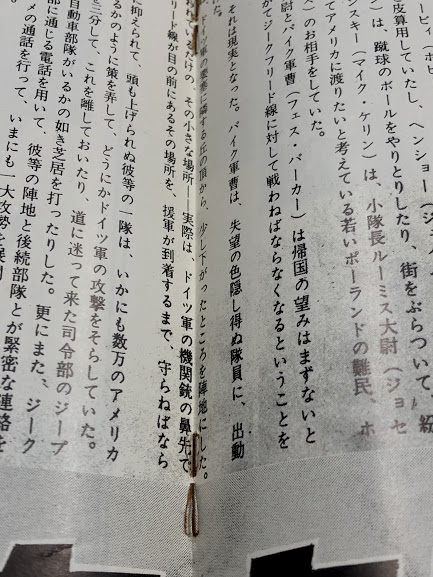 ービィ（ボビ
皮算用していたし、ヘンショー（ジ
は、蹴球のボールをやりとりしたり、街をぶらついて
ンスキー（マイク・ケリン）は、小隊長ルーミス大尉（ジョセ
てアメリカに渡りたいと考えている若いポーランドの難民、ホ
）のお相手をしていた。
尉とパイク軍曹（フェス・パーカー）は帰国の望みはまずないと
がてジークフリード線に対して戦わねばならなくなるということを
それは現実となった。パイク軍曹は、失望の色隠し得ぬ隊員に、出動
た。
ドイツ軍の要塞に隣する丘の頂から、少し下がったところを陣地にした。
の、その小さな場所――実際は、ドイツ軍の機関銃の鼻先で
リード線が目の前にあるその場所を、援軍が到着するまで、守らねばなら
抑えられて、頭も上げられぬ彼等の一隊は、いかにも数万のアメリカ
るかのように策を弄して、どうにかドイツ軍の攻撃をそらしていた。
を三分して、これを離しておいたり、道に迷って来た司令部のジープ
自動車部隊がいるかの如き芝居を打ったりした。更にまた、ジーク
部に通じる電話を用いて、彼等の陣地と後続部隊とが緊密な連絡を
メの通話を行って、いまにも一大攻勢を